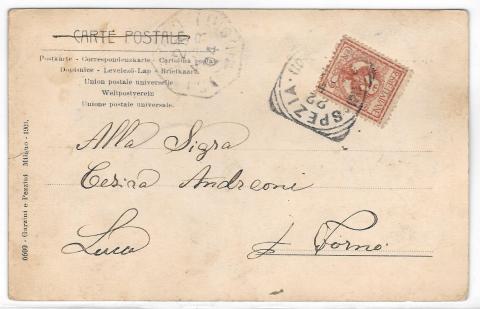 CARTE POSTALE
Postkarte - Correspondenzkarte - Cartolina postale
Dopisnice - Levelező-Lap - Briefkaart
Union postale universelle
Weltpostverein
Unione postale universale.
SPEZIA
22
Alla Sigra
Cesira Andreoni
Lucca
Forno
6600 - Garzini e Pezzini Milano - 1901.